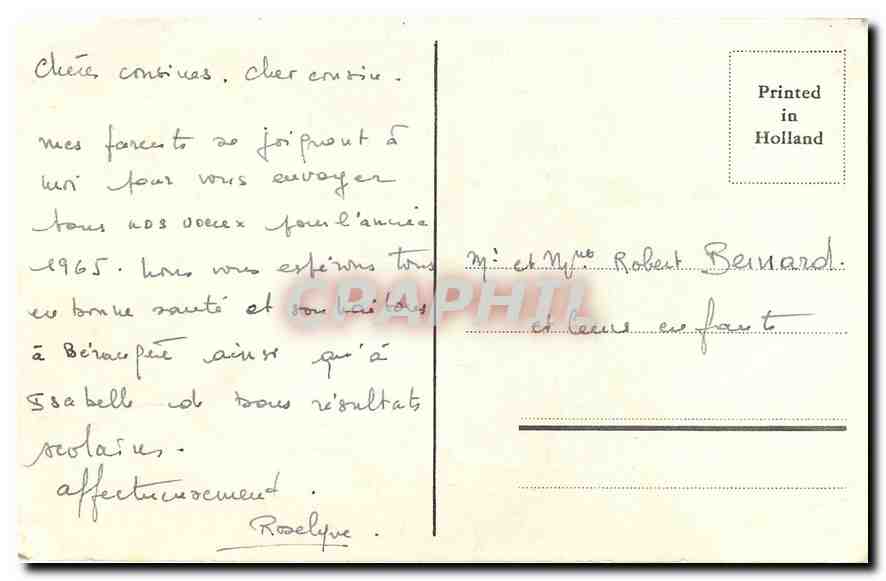 Chères cousines, cher cousin.
mes parents se joignent à
moi pour vous envoyer
tous nos voeux pour l'année
1965. Nous vous espérons tous
en bonne santé et souhaitons
à Bérangère ainsi qu'à
Isabelle de bons résultats
scolaires.
affectueusement.
Roselyne.
Printed
in
Holland
Mr et Mme Robert Bernard.
et leurs enfants
CPAPHIL